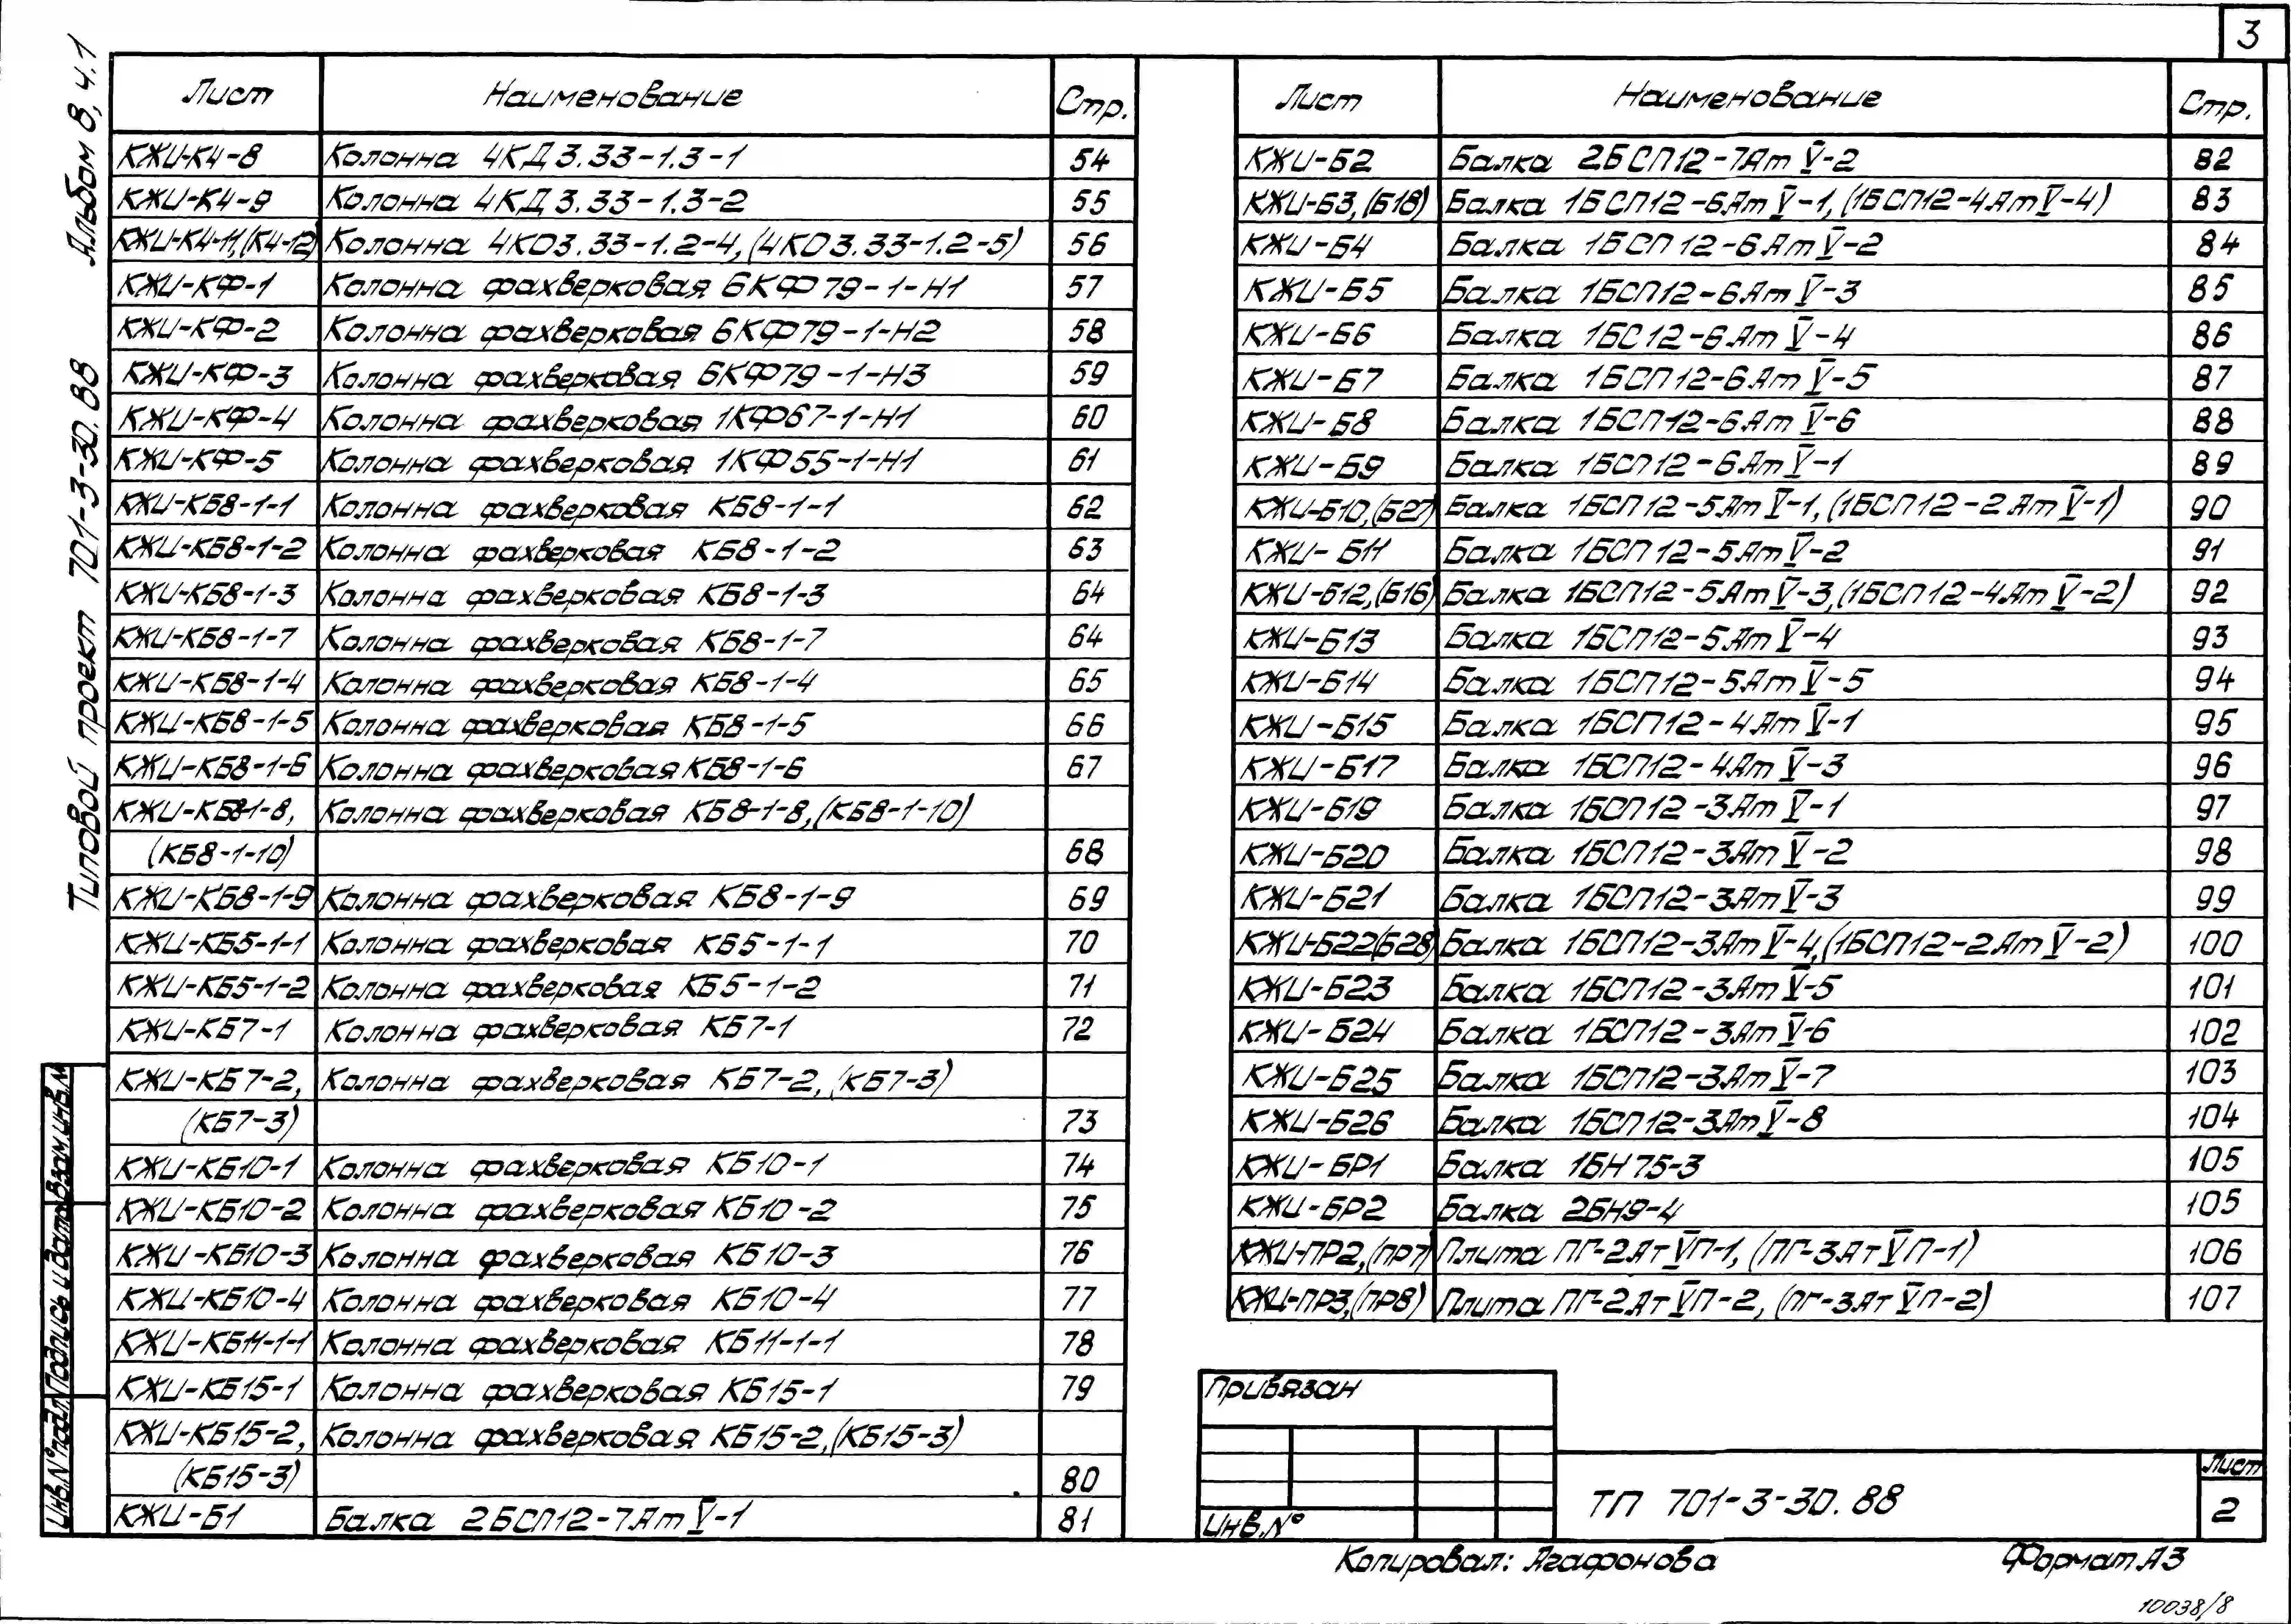 3
Альбом 8, ч.1
Типовой проект 701-3-30.88
Лист Наименование Стр.
КЖИ-К4-8 Колонна 4КД3.33-1.3-1 54
КЖИ-К4-9 Колонна 4КД3.33-1.3-2 55
КЖИ-К4-11,(К4-12) Колонна 4КО3.33-1.2-4,(4КО3.33-1.2-5) 56
КЖИ-КФ-1 Колонна фахверковая 6КФ79-1-Н1 57
КЖИ-КФ-2 Колонна фахверковая 6КФ79-1-Н2 58
КЖИ-КФ-3 Колонна фахверковая 6КФ79-1-Н3 59
КЖИ-КФ-4 Колонна фахверковая 1КФ67-1-Н1 60
КЖИ-КФ-5 Колонна фахверковая 1КФ55-1-Н1 61
КЖИ-КБ8-1-1 Колонна фахверковая КБ8-1-1 62
КЖИ-КБ8-1-2 Колонна фахверковая КБ8-1-2 63
КЖИ-КБ8-1-3 Колонна фахверковая КБ8-1-3 64
КЖИ-КБ8-1-7 Колонна фахверковая КБ8-1-7 64
КЖИ-КБ8-1-4 Колонна фахверковая КБ8-1-4 65
КЖИ-КБ8-1-5 Колонна фахверковая КБ8-1-5 66
КЖИ-КБ8-1-6 Колонна фахверковая КБ8-1-6 67
КЖИ-КБ8-1-8, Колонна фахверковая КБ8-1-8,(КБ8-1-10)
(КБ8-1-10) 68
КЖИ-КБ8-1-9 Колонна фахверковая КБ8-1-9 69
КЖИ-КБ5-1-1 Колонна фахверковая КБ5-1-1 70
КЖИ-КБ5-1-2 Колонна фахверковая КБ5-1-2 71
КЖИ-КБ7-1 Колонна фахверковая КБ7-1 72
КЖИ-КБ7-2, Колонна фахверковая КБ7-2,(КБ7-3)
(КБ7-3) 73
КЖИ-КБ10-1 Колонна фахверковая КБ10-1 74
КЖИ-КБ10-2 Колонна фахверковая КБ10-2 75
КЖИ-КБ10-3 Колонна фахверковая КБ10-3 76
КЖИ-КБ10-4 Колонна фахверковая КБ10-4 77
КЖИ-КБ11-1-1 Колонна фахверковая КБ11-1-1 78
КЖИ-КБ15-1 Колонна фахверковая КБ15-1 79
КЖИ-КБ15-2, Колонна фахверковая КБ15-2,(КБ15-3)
(КБ15-3) 80
КЖИ-Б1 Балка 2БСП12-7АтV-1 81
Лист Наименование Стр.
КЖИ-Б2 Балка 2БСП12-7АтV-2 82
КЖИ-Б3,(Б18) Балка 1БСП12-6АтV-1,(1БСП12-4АтV-4) 83
КЖИ-Б4 Балка 1БСП12-6АтV-2 84
КЖИ-Б5 Балка 1БСП12-6АтV-3 85
КЖИ-Б6 Балка 1БС12-6АтV-4 86
КЖИ-Б7 Балка 1БСП12-6АтV-5 87
КЖИ-Б8 Балка 1БСП12-6АтV-6 88
КЖИ-Б9 Балка 1БСП12-6АтV-1 89
КЖИ-Б10,(Б27) Балка 1БСП12-5АтV-1,(1БСП12-2АтV-1) 90
КЖИ-Б11 Балка 1БСП12-5АтV-2 91
КЖИ-Б12,(Б16) Балка 1БСП12-5АтV-3,(1БСП12-4АтV-2) 92
КЖИ-Б13 Балка 1БСП12-5АтV-4 93
КЖИ-Б14 Балка 1БСП12-5АтV-5 94
КЖИ-Б15 Балка 1БСП12-4АтV-1 95
КЖИ-Б17 Балка 1БСП12-4АтV-3 96
КЖИ-Б19 Балка 1БСП12-3АтV-1 97
КЖИ-Б20 Балка 1БСП12-3АтV-2 98
КЖИ-Б21 Балка 1БСП12-3АтV-3 99
КЖИ-Б22(Б28) Балка 1БСП12-3АтV-4,(1БСП12-2АтV-2) 100
КЖИ-Б23 Балка 1БСП12-3АтV-5 101
КЖИ-Б24 Балка 1БСП12-3АтV-6 102
КЖИ-Б25 Балка 1БСП12-3АтV-7 103
КЖИ-Б26 Балка 1БСП12-3АтV-8 104
КЖИ-БР1 Балка 1БН75-3 105
КЖИ-БР2 Балка 2БН9-4 105
КЖИ-ПР2,(ПР7) Плита ПГ-2АтVП-1, (ПГ-3АтVП-1) 106
КЖИ-ПР3,(ПР8) Плита ПГ-2АтVП-2, (ПГ-3АтVП-2) 107
Инв.№подл. Подпись и дата Взам.инв.№
Привязан
Инв.№
ТП 701-3-30.88
Лист
2
Копировал: Агафонова
Формат А3
10038/8